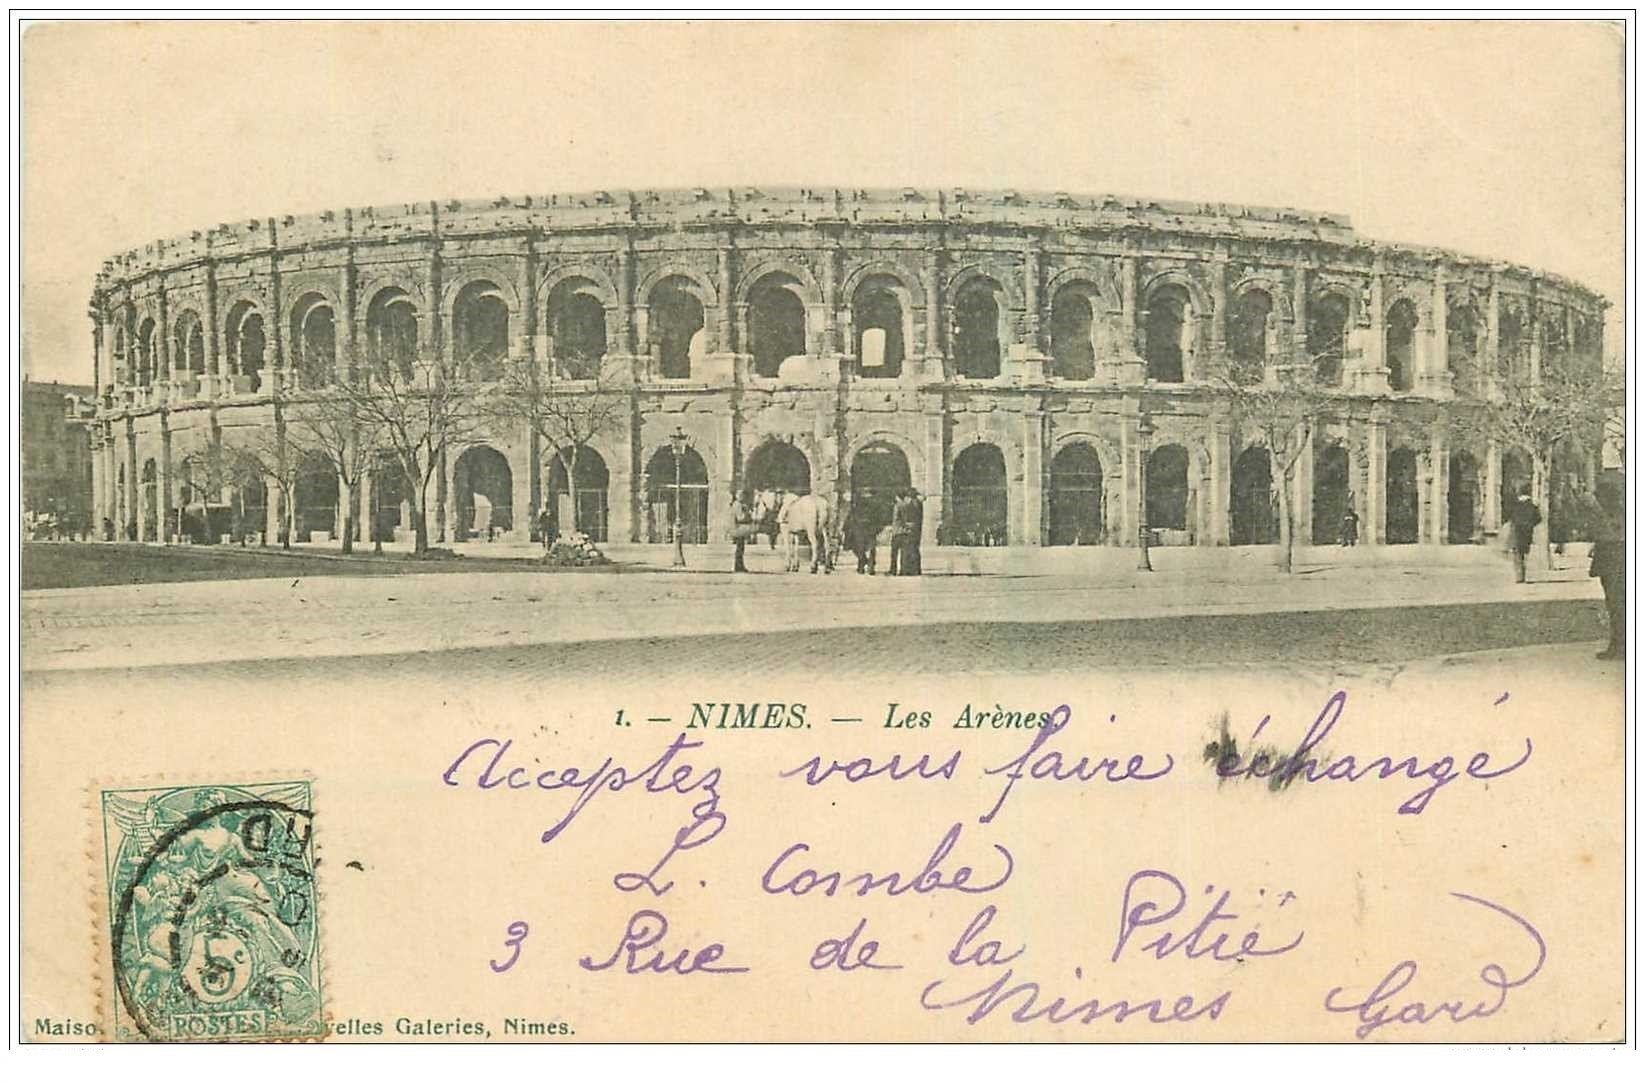 1. — NIMES. — Les Arènes.
Acceptez vous faire échange
L. Combe
3 Rue de la Pitié
Nimes Gard
5c
POSTES
Galeries, Nimes.